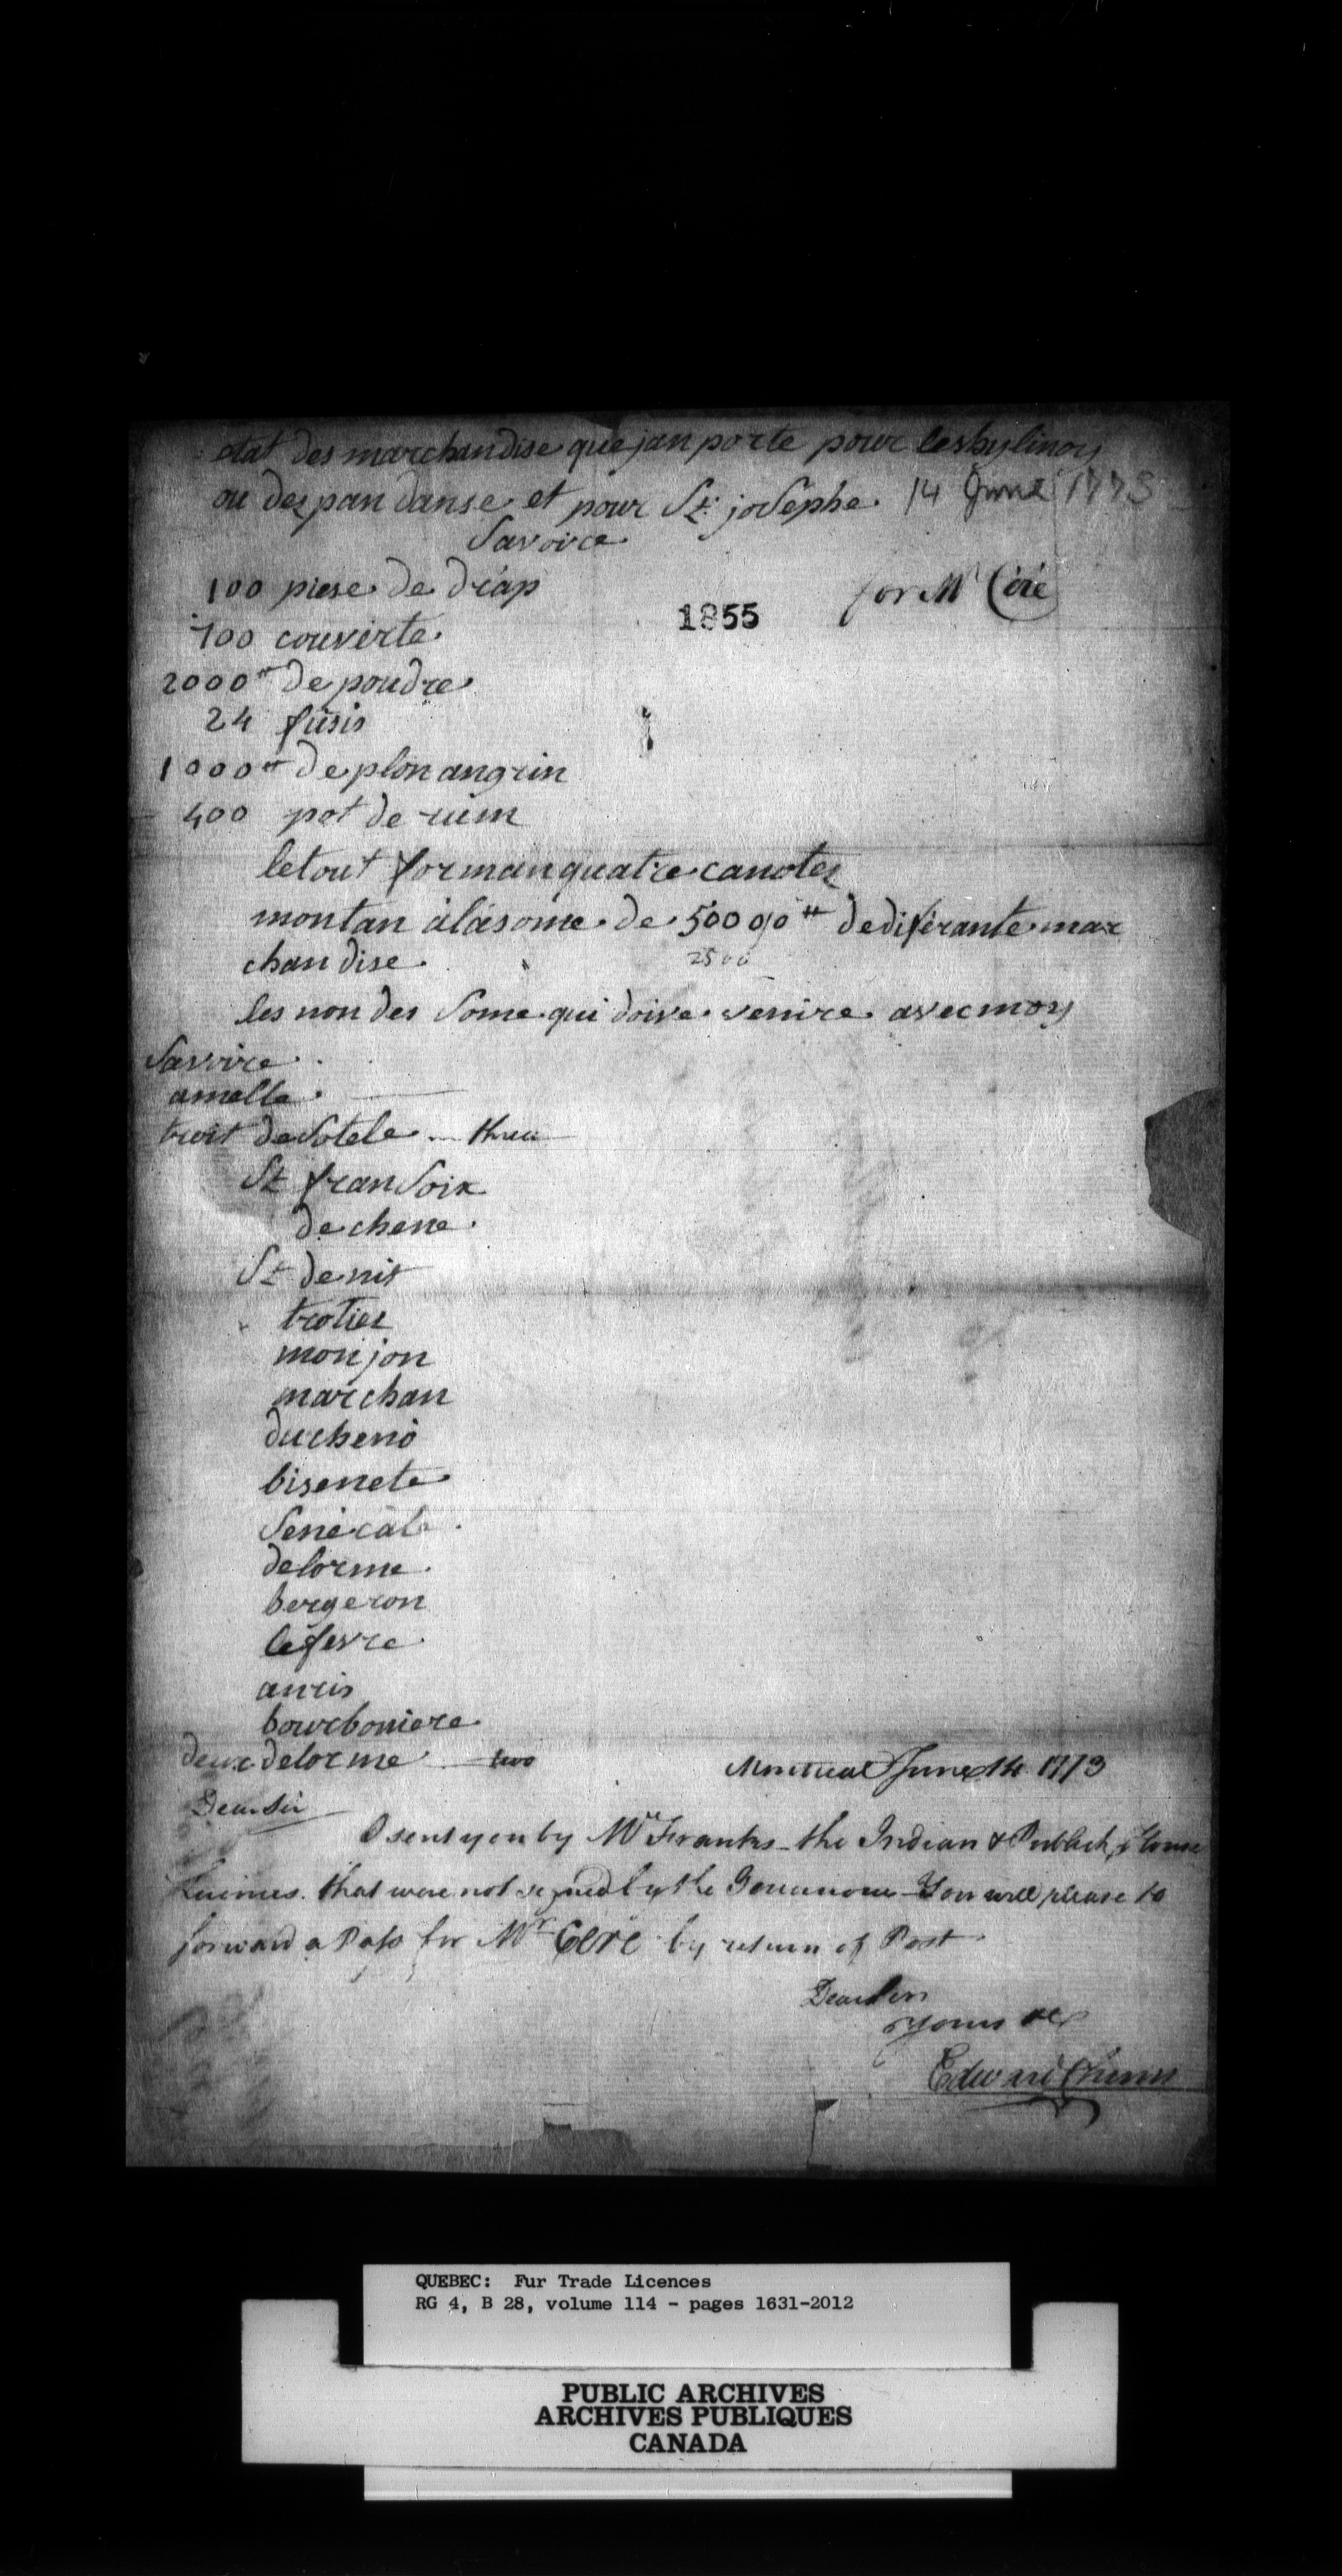 etat des marchandise que jan porte pour les hylinoy
ou dez pan danse et pour St. joSephe 14 June 1773
Savoire
100 piese de drap
for Mr Céré
1855
100 couverte
2000 tt de poudre
24 fusis
1000 tt de plon angrin
400 pot de rum
le tout forman quatre canotez
montan à la some de 50000 tt de diférante mar
chandise
2500
les non des Some qui doive venire avec moy
Savoire
amelle
troit deSotele three
St franSoix
dechene
St denit
trotiez
monjon
marchan
ducheno
bisenete
Senécalle
delorme
bergeron
lefevre
anris
bourboniere
deux delorme two
Montreal June 14 1773
Dear Sir
I sent you by Mr Franks the Indian & Publick House
Licences that were not signed by the Governour You will please to
forward a Pass for Mr Céré by return of Post
Dear Sir
Yours &c
Edward Chinn
QUEBEC: Fur Trade Licences
RG 4, B 28, volume 114 - pages 1631-2012
PUBLIC ARCHIVES
ARCHIVES PUBLIQUES
CANADA